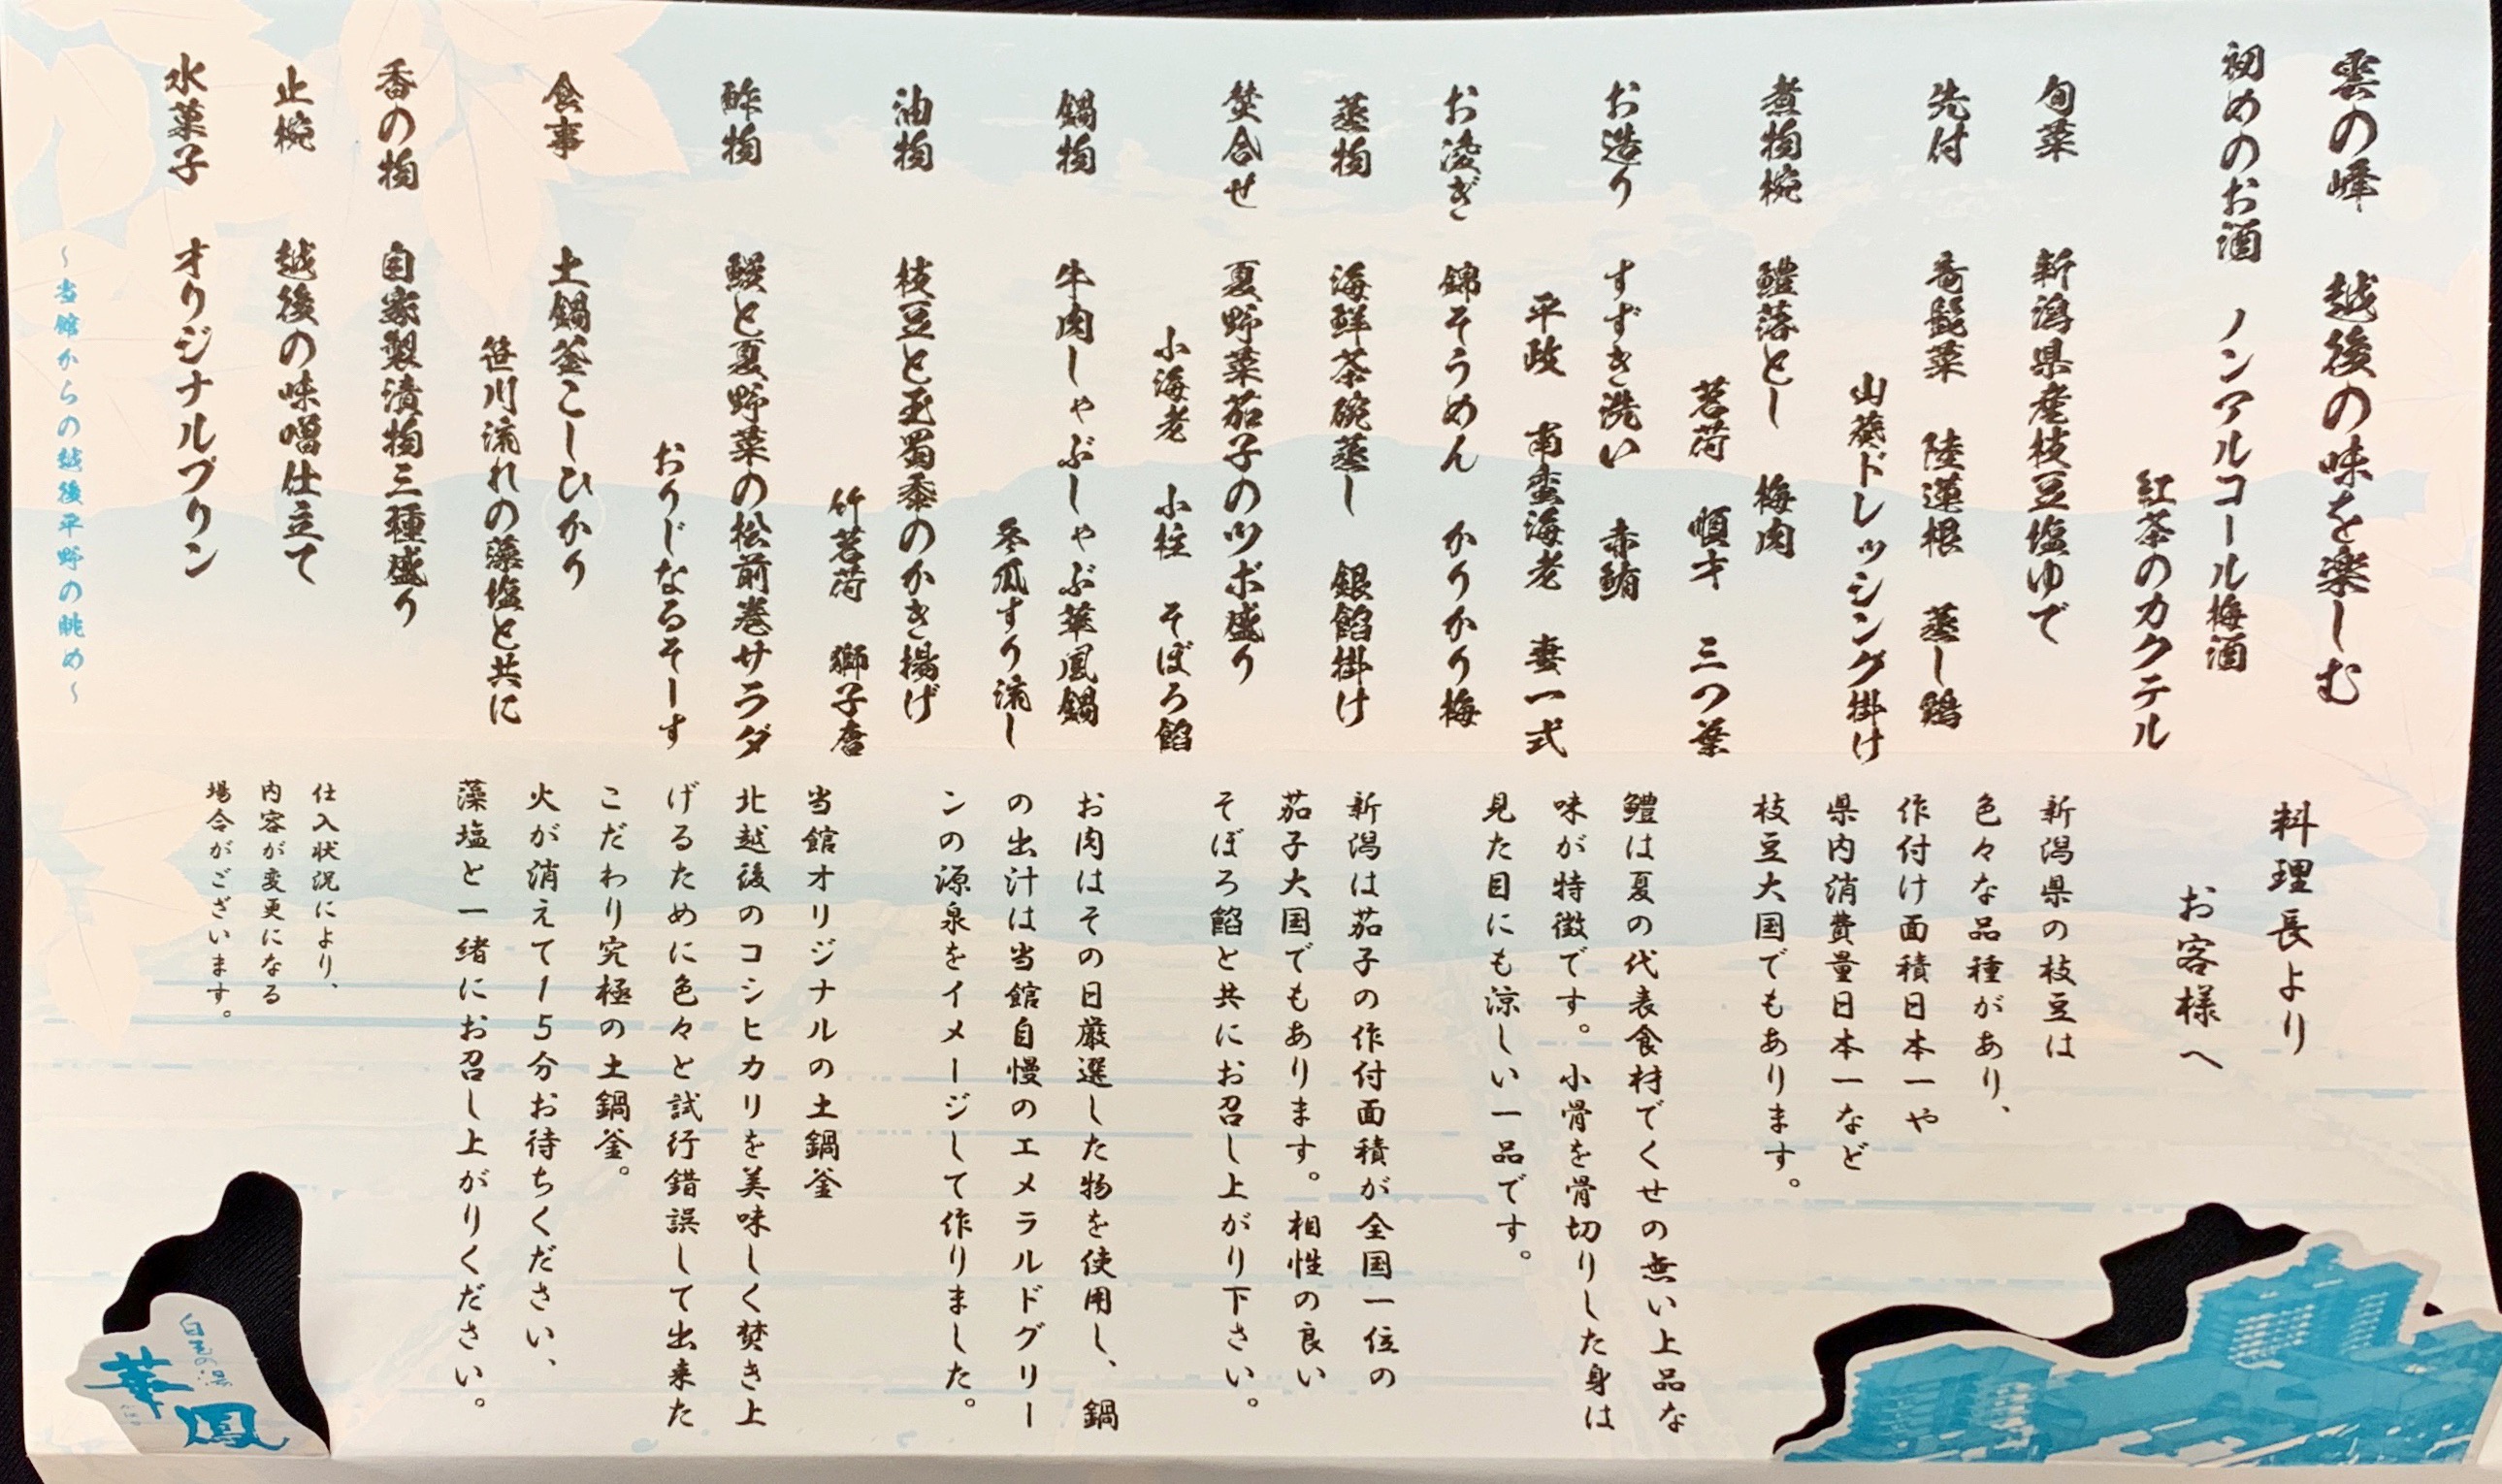 雲の峰　越後の味を楽しむ
初めのお酒　ノンアルコール梅酒
紅茶のカクテル
旬菜　新潟県産枝豆塩ゆで
先付　海髪菜　陸蓮根　蒸し鶏
山葵ドレッシング掛け
煮物椀　鱧落とし　梅肉
茗荷　順才　三つ葉
お造り　すずき洗い　赤鮪
平政　南蛮海老　妻一式
お凌ぎ　錦そうめん　かりかり梅
蒸物　海鮮茶碗蒸し　銀餡掛け
焚合せ　夏野菜茄子のツボ盛り
小海老　小柱　そぼろ餡
鍋物　牛肉しゃぶしゃぶ華鳳鍋
冬瓜すり流し
油物　枝豆と玉蜀黍のかき揚げ
竹茗荷　獅子唐
酢物　鰻と夏野菜の松前巻サラダ
おりじなるそーす
食事　土鍋釜こしひかり
笹川流れの藻塩と共に
香の物　自家製漬物三種盛り
止椀　越後の味噌仕立て
水菓子　オリジナルプリン
～当館からの越後平野の眺め～
料理長より
お客様へ
新潟県の枝豆は
色々な品種があり、
作付け面積日本一や
県内消費量日本一など
枝豆大国でもあります。
鱧は夏の代表食材でくせの無い上品な
味が特徴です。小骨を骨切りした身は
見た目にも涼しい一品です。
新潟は茄子の作付面積が全国一位の
茄子大国でもあります。相性の良い
そぼろ餡と共にお召し上がり下さい。
お肉はその日厳選した物を使用し、鍋
の出汁は当館自慢のエメラルドグリー
ンの源泉をイメージして作りました。
当館オリジナルの土鍋釜
北越後のコシヒカリを美味しく焚き上
げるために色々と試行錯誤して出来た
こだわり究極の土鍋釜。
火が消えて15分お待ちください、
藻塩と一緒にお召し上がりください。
仕入状況により、
内容が変更になる
場合がございます。
白玉の湯
華鳳